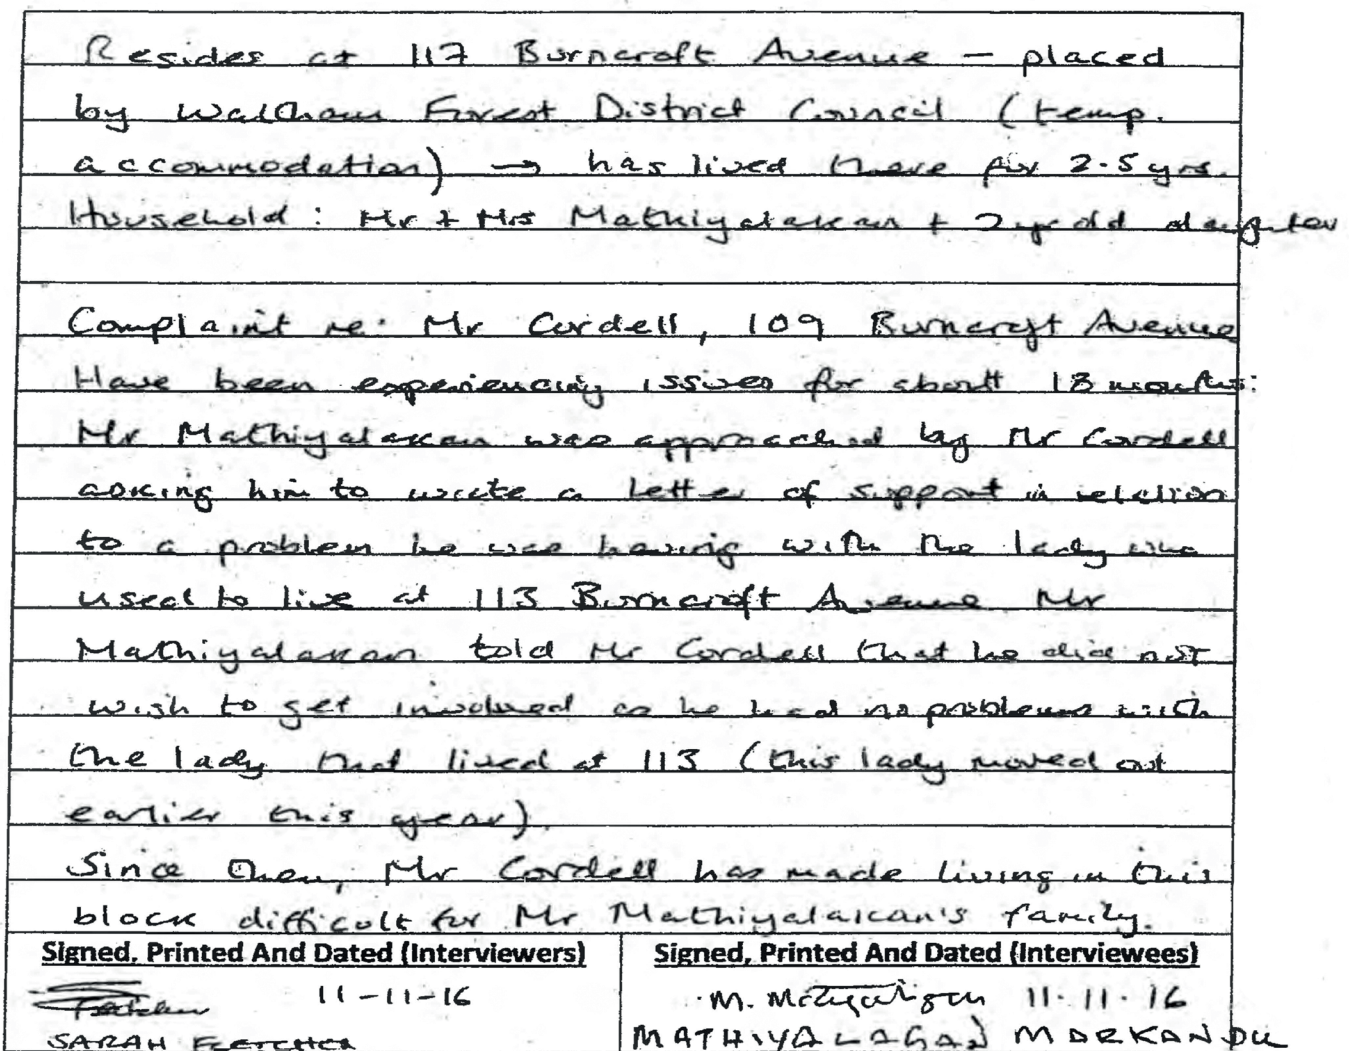 Resides at 117 Burncroft Avenue - placed
by Waltham Forest District Council (temp.
accommodation) → has lived there for 2.5 yrs.
Household: Mr + Mrs Mathiyalakan + 2 yr old daughter
Complaint re: Mr Cordell, 109 Burncroft Avenue
Have been experiencing issues for about 18 months:
Mr Mathiyalakan was approached by Mr Cordell
asking him to write a letter of support in relation
to a problem he was having with the lady who
used to live at 113 Burncroft Avenue. Mr
Mathiyalakan told Mr Cordell that he did not
wish to get involved as he had no problems with
the lady that lived at 113 (this lady moved out
earlier this year).
Since then, Mr Cordell has made living in this
block difficult for Mr Mathiyalakan's family.
Signed, Printed And Dated (Interviewers) Signed, Printed And Dated (Interviewees)
Fletcher 11-11-16 M. 11.11.16
SARAH FLETCHER MATHIYALAGAN MARKANDU